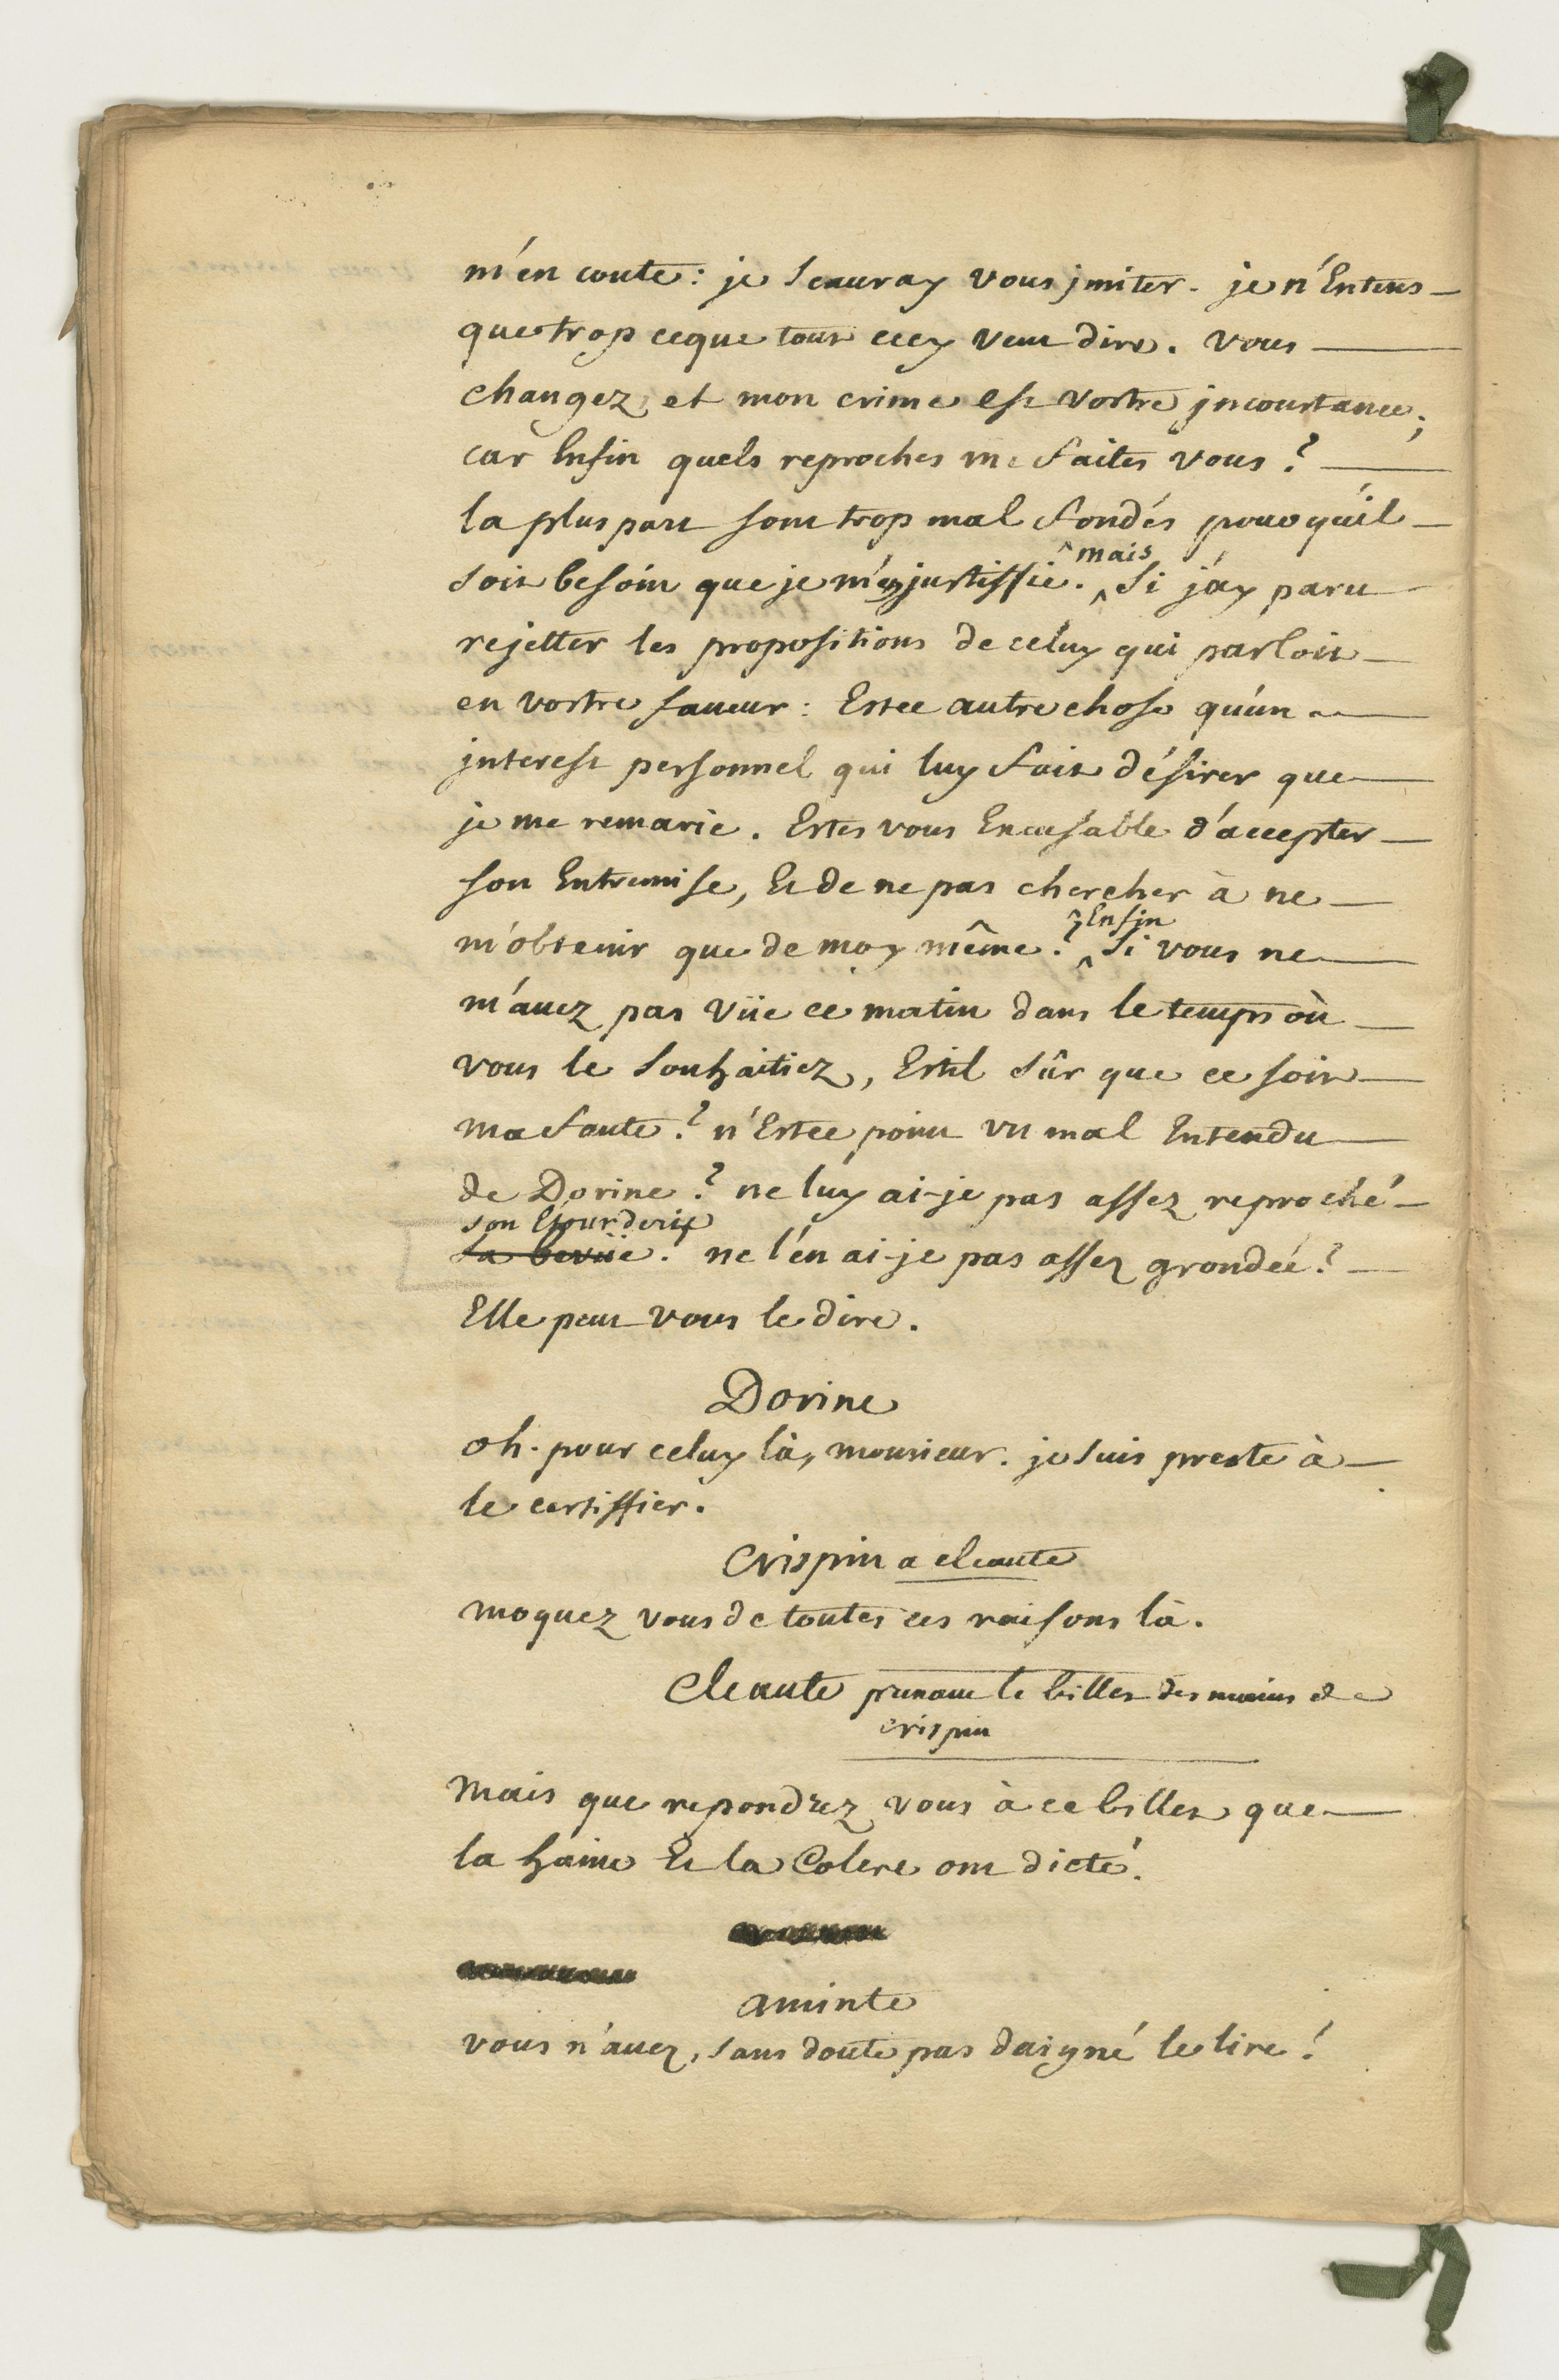 m'en coute: je scauray vous jmiter. je n'Entens
que trop ceque tout cecy veut dire. vous
changez, et mon crime est vostre jnconstance;
car Enfin quels reproches me faites vous?
la pluspart sont trop mal fondés pour qu'il
mais
soit besoin que je m'en justiffie. Si j'ay paru
rejetter les propositions de celuy qui parloit
en vostre faueur: Estce autre chose qu'un
jnterest personnel qui luy fait désirer que
je me remarie. Estes vous Excusable d'accepter
son Entremise, Et de ne pas chercher à ne
Enfin
m'obtenir que de moy même? Si vous ne
m'auez pas vüe ce matin dans le temps où
vous le souhaitiez, Estil sûr que ce soit
ma faute? n'Estce point un mal Entendu
de Dorine? ne luy ai-je pas assez reproché
son Etourderie
sa bevüe? ne l'en ai-je pas assez grondée?
Elle peut vous le dire.
Dorine
oh. pour celuy là, monsieur. je suis preste à
le certiffier.
Crispin a cleante
moquez vous de toutes ces raisons là.
Cleante prenant le billet des mains de
crispin
Mais que repondrez vous à ce billet que
la haine Et la Colere ont dicté.
aminte
vous n'auez, sans doute pas daigné le lire?